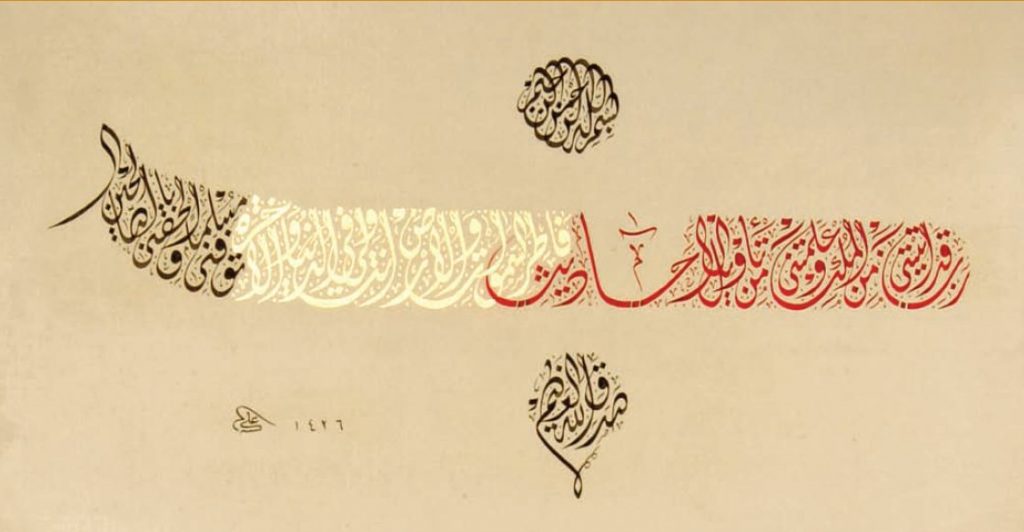 بسم الله الرحمن الرحيم
رب قد آتيتني من الملك وعلمتني من تأويل الأحاديث فاطر السموات والأرض أنت وليي في الدنيا والآخرة توفني مسلما وألحقني بالصالحين
صدق الله العظيم
علي ١٤٢٦